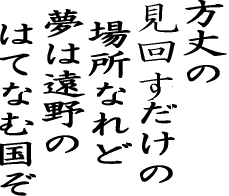 方丈の
見回すだけの
場所なれど
夢は遠野の
はてなむ国ぞ